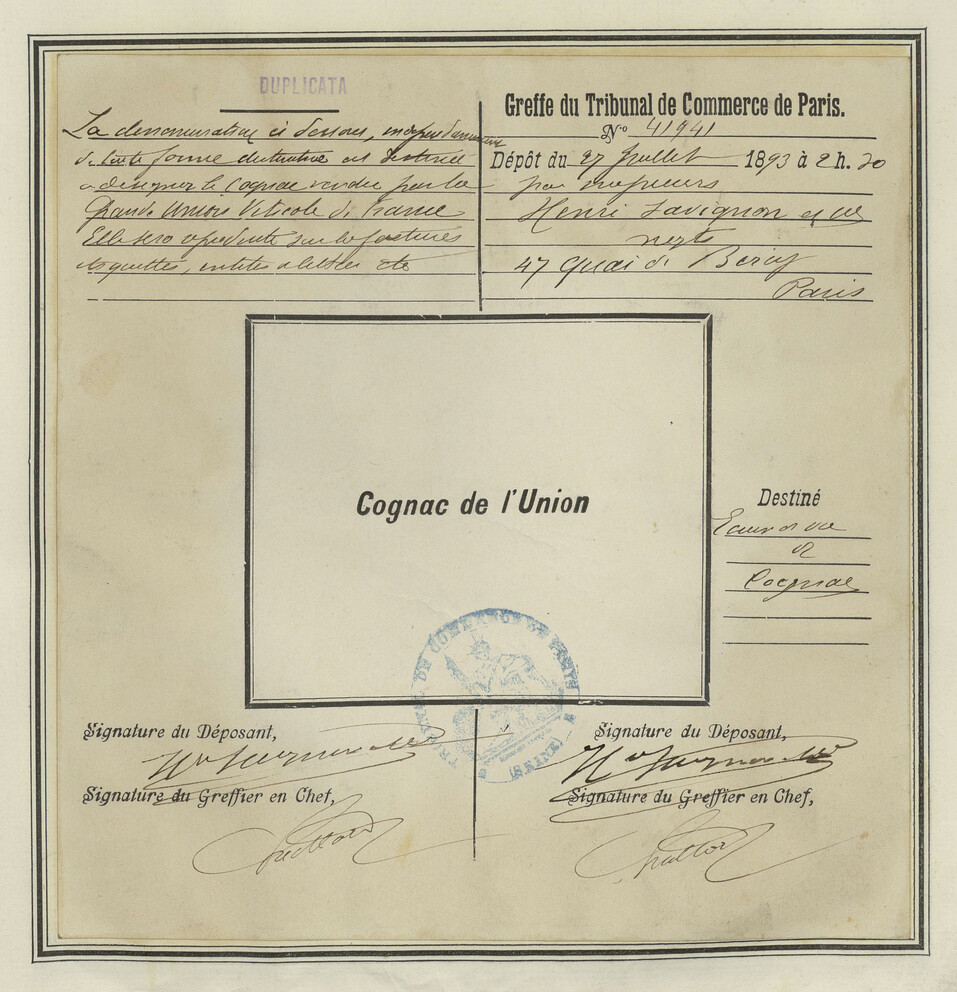 DUPLICATA
La denomination ci dessous, independamment
de toute forme distinctive est destinée
a designer le Cognac vendu par la
Grande Union Viticole de France
Elle sera apposée sur les factures
etiquettes, entetes de lettres etc
Greffe du Tribunal de Commerce de Paris.
N° 41941
Dépôt du 27 Juillet 1893 à 2 h. 20
par
Henri Savignon et Cie
negts
47 Quai de Bercy
Paris
Cognac de l'Union
Destiné
Eaux de vie
et
Cognac
TRIBUNAL DE COMMERCE DE PARIS
(SEINE)
Signature du Déposant,
Signature du Déposant,
Signature du Greffier en Chef,
Signature du Greffier en Chef,